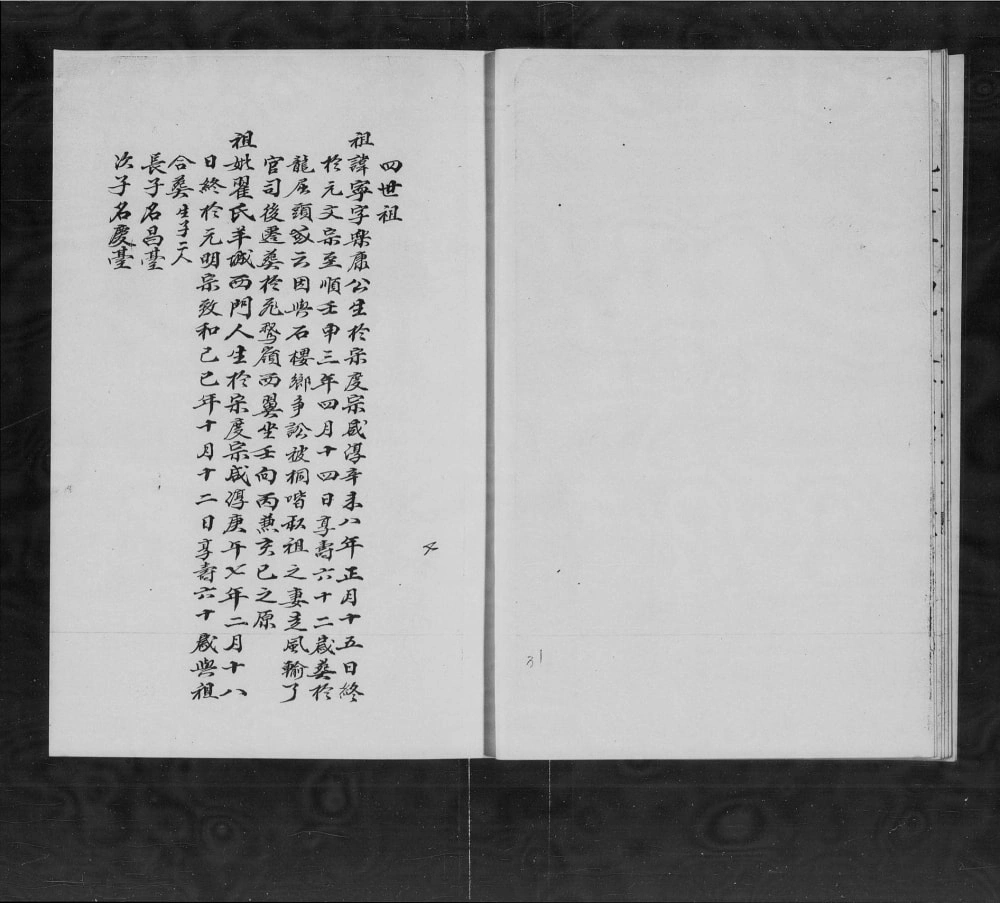 四世祖
祖諱寧字樂康公生於宋度宗咸淳辛未八年正月十五日終
於元文宗至順壬申三年四月十四日享壽六十二歲葬於
龍居頭 云因與石樓鄉爭訟被桐喈 祖之妻走風輸了
官司後遷葬於飛鵞嶺西翼坐壬向丙兼亥巳之原
祖妣翟氏羊城西門人生於宋度宗咸淳庚午七年二月十八
日終於元明宗致和己巳年十月十二日享壽六十歲與祖
合葬生子二人
長子名昌臺
次子名慶臺
31